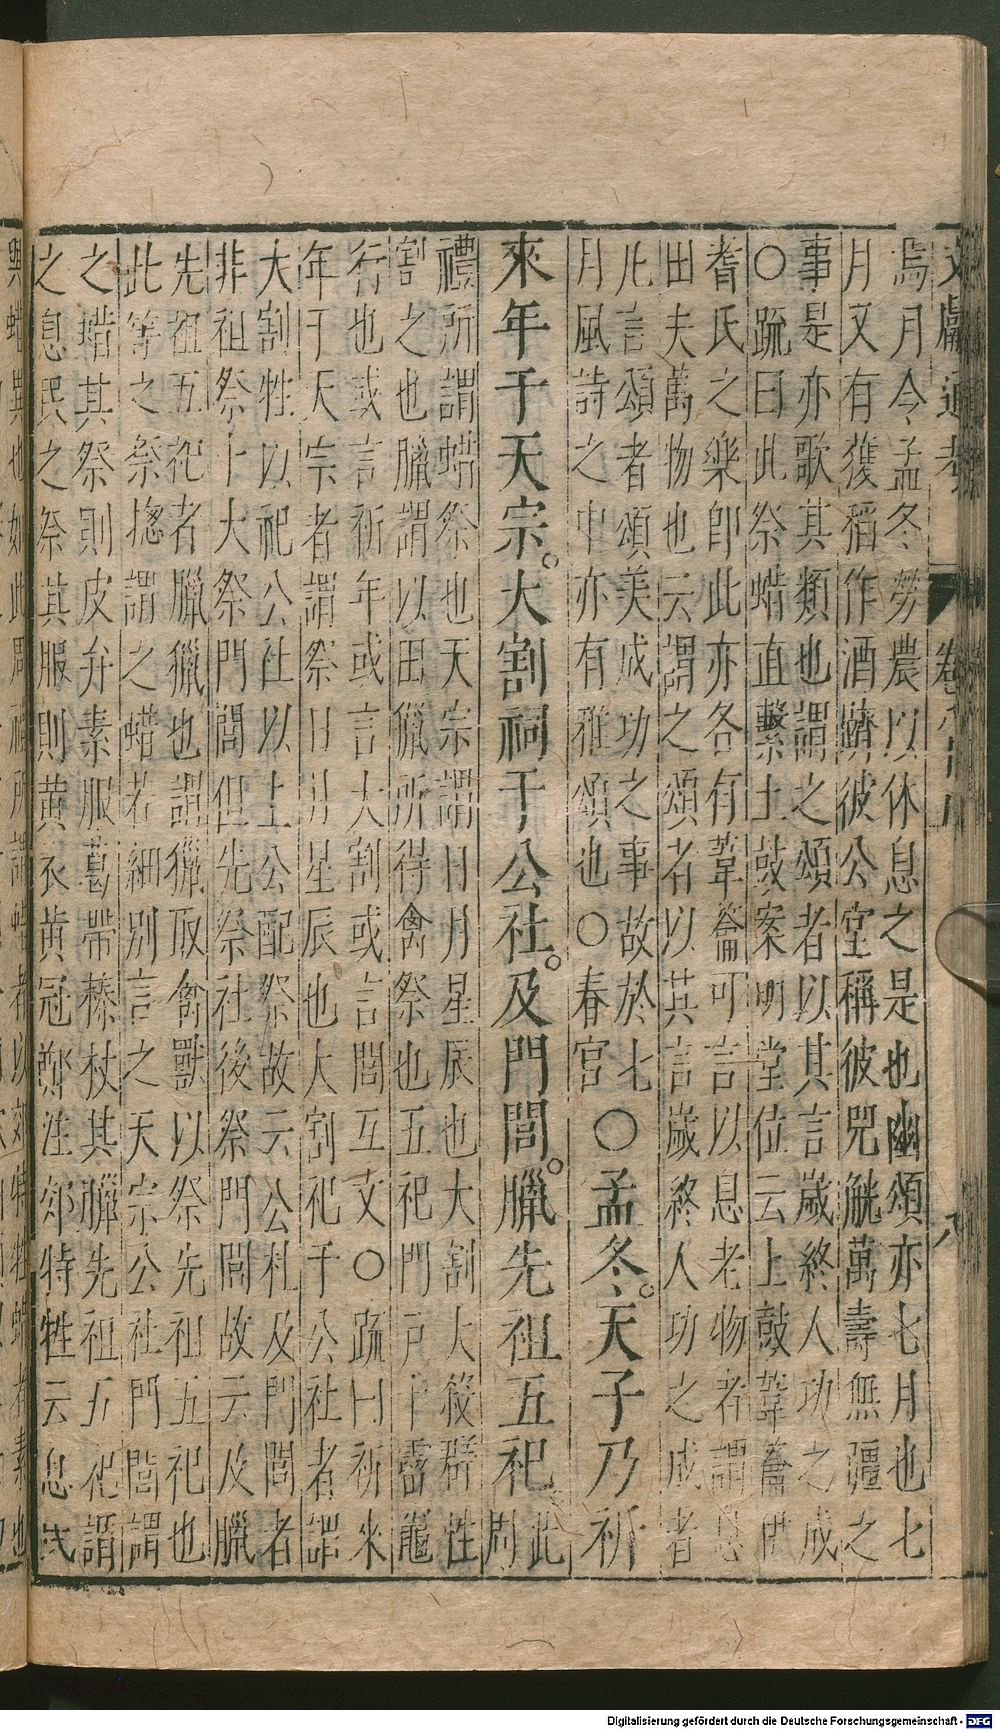 文獻通考 卷八十
焉月令孟冬勞農以休息之是也豳頌亦七月也七
月又有獲稻作酒躋彼公堂稱彼兕觥萬壽無疆之
事是亦歌其類也謂之頌者以其言歲終人功之成
○疏曰此祭蜡直繫土鼓案明堂位云土鼓葦籥伊
耆氏之樂即此亦各有葦籥可言以息老物者謂息
田夫萬物也云謂之頌者以其言歲終人功之成者
凡言頌者頌美成功之事故於七
月風詩之中亦有雅頌也○春官
○孟冬。天子乃祈
來年于天宗。大割祠于公社。及門閭。臘先祖五祀。
此周
禮所謂蜡祭也天宗謂日月星辰也大割大殺群牲
割之也臘謂以田獵所得禽祭也五祀門戶中霤竈
行也或言祈年或言大割或言閭互文○疏曰祈來
年于天宗者謂祭日月星辰也大割祀于公社者謂
大割牲以祀公社以上公配祭故云公社及門閭者
非祖祭上大祭門閭但先祭社後祭門閭故云及臘
先祖五祀者臘獵也謂獵取禽獸以祭先祖五祀也
此等之祭摠謂之蜡若細別言之天宗公社門閭謂
之蜡其祭則皮弁素服葛帶榛杖其臘先祖五祀謂
之息民之祭其服則黄衣黄冠鄭注郊特牲云息民
Digitalisierung gefördert durch die Deutsche Forschungsgemeinschaft - DFG